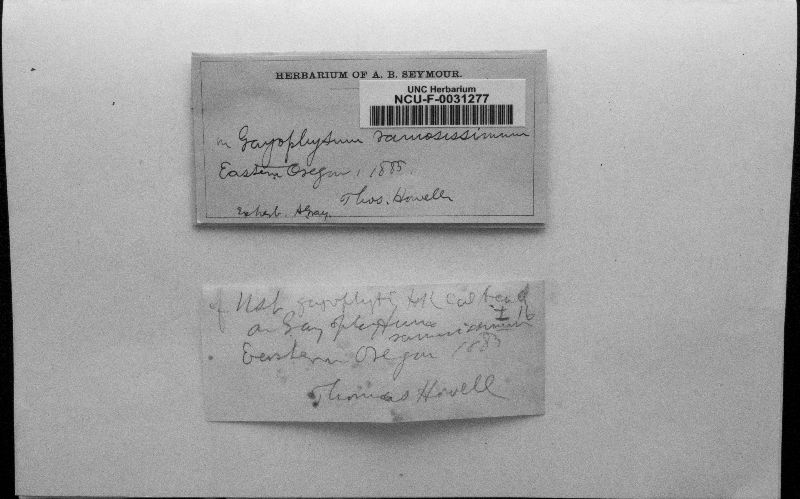 HERBARIUM OF A. B. SEYMOUR.
UNC Herbarium
NCU-F-0031277
on Gayophytum ramosissimum
Eastern Oregon, 1885.
Thos. Howell
Ex herb. A Gray.
Not
on Gayophytum
ramosissimum
Eastern Oregon 1885
Thomas Howell